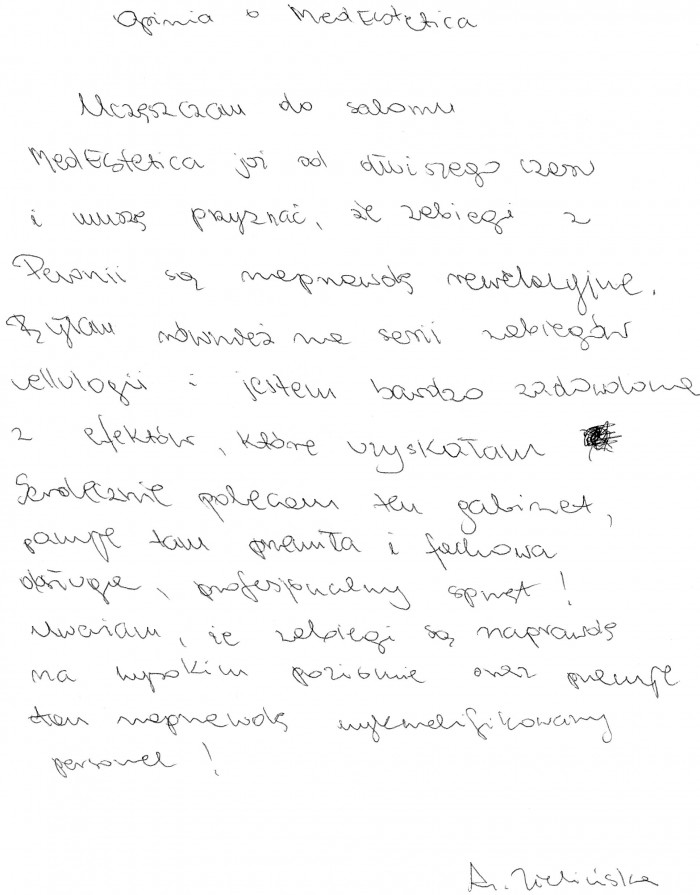 Opinia o MedEstetica
Uczęszczam do salonu
MedEstetica już od dłuższego czasu
i muszę przyznać, że zabiegi z
są naprawdę rewelacyjne.
Byłam również na serii zabiegów
cellulogii i jestem bardzo zadowolona
z efektów, które uzyskałam
Serdecznie polecam ten gabinet,
panuje tam przemiła i fachowa
obsługa, profesjonalny sprzęt!
Uważam, że zabiegi są naprawdę
na wysokim poziomie oraz pracuje
tam naprawdę wykwalifikowany
personel!
A. Zielińska